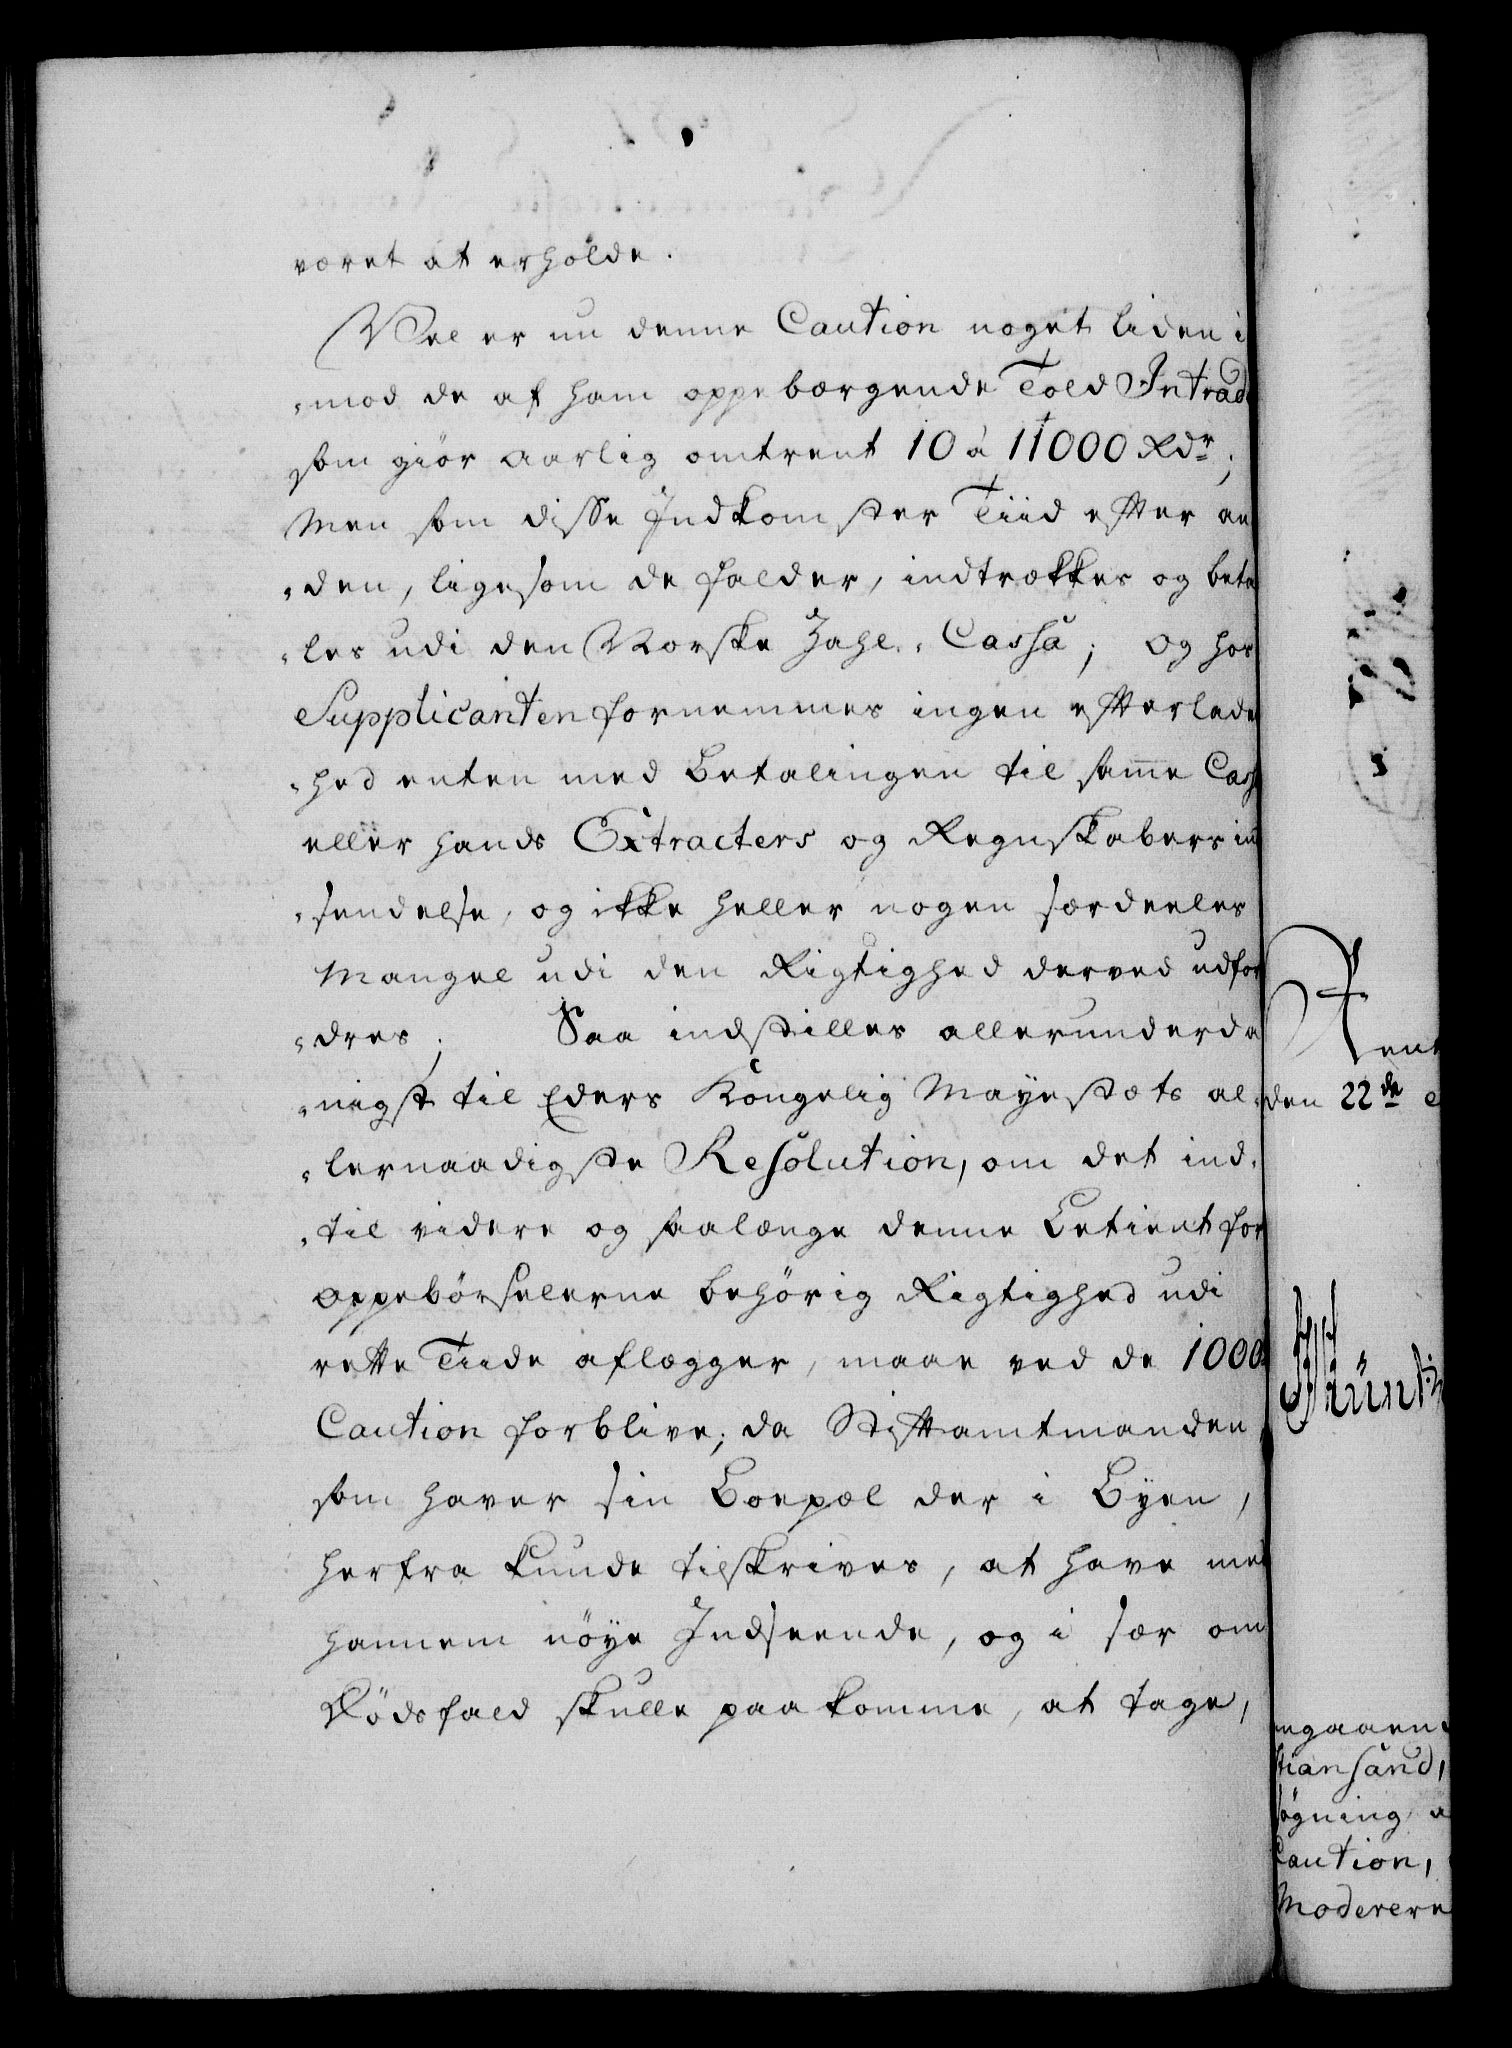 været at erholde.
Vel er nu denne Caution noget liden i
„mod de af ham oppebærgende Told Intrad
som giør aarlig omtrent 10 à 11000 Rdr;
Men som disse Indkomster Tiid efter an
„den, ligesom de falder, indtrækkes og beta
„les udi den Norske Zahl-Cassa; og hos
Supplicanten fornemmes ingen efterlade
„hed enten med Betalingen til samme Cass
eller hands Extracters og Regnskabers ind
„sendelse, og ikke heller nogen særdeeles
Mangel udi den Rigtighed derved udfor
„dres; Saa indstilles allerunderda
„nigst til Eders Kongelig Mayestæts al-
„lernaadigste Resolution, om det ind-
„til videre og saalænge denne Betient for
oppebørselerne behørig Rigtighed udi
rette Tiide aflægger, maae ved de 1000
Caution forblive; da Stiftamtmanden
som haver sin Boepæl der i Byen,
herfra kunde tilskrives, at have med
hannem nøye Indseende, og i sær om
Dødsfald skulle paakomme, at tage,
Rent
den 22de
ngaaend
stiansand,
søgning
Caution,
Moderere